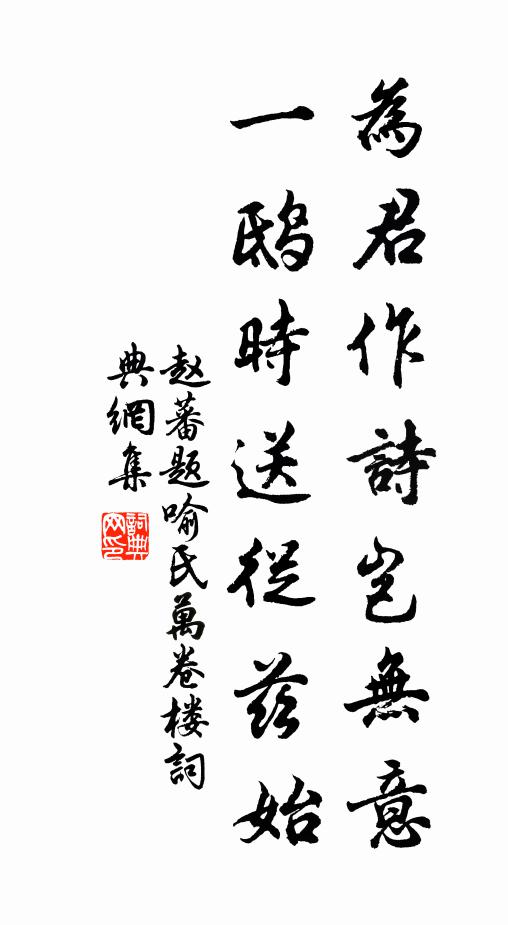 為君作詩豈無意
一鴟時送從茲始
赵蕃题喻氏萬卷楼詞
典網集
詞典
网印